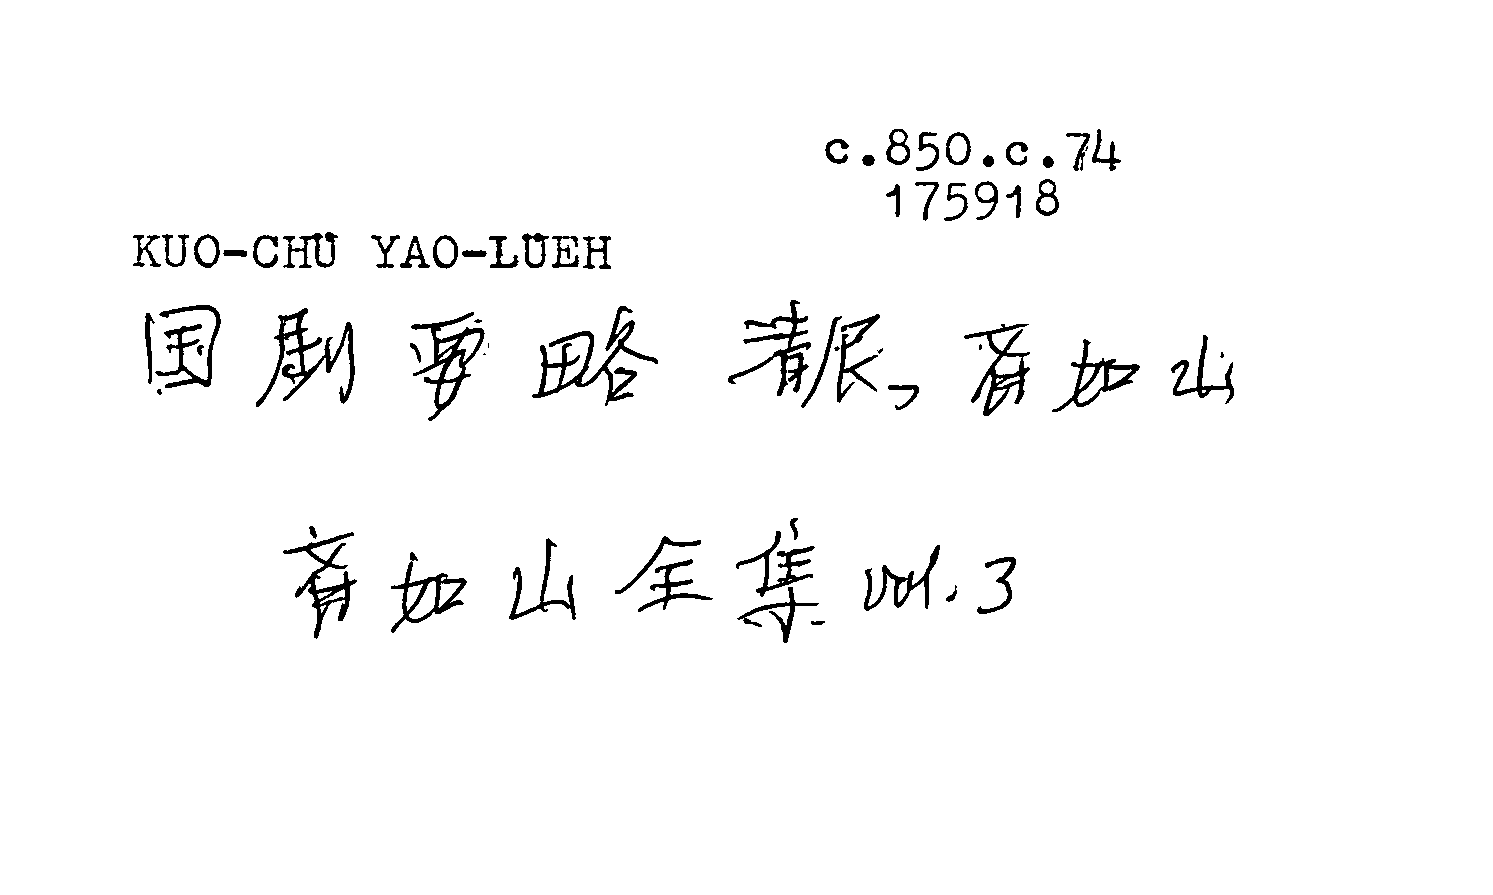 c.850.c.74
175918
KUO-CHÜ YAO-LÜEH
国劇要略 斉如山
斉如山全集 vol. 3